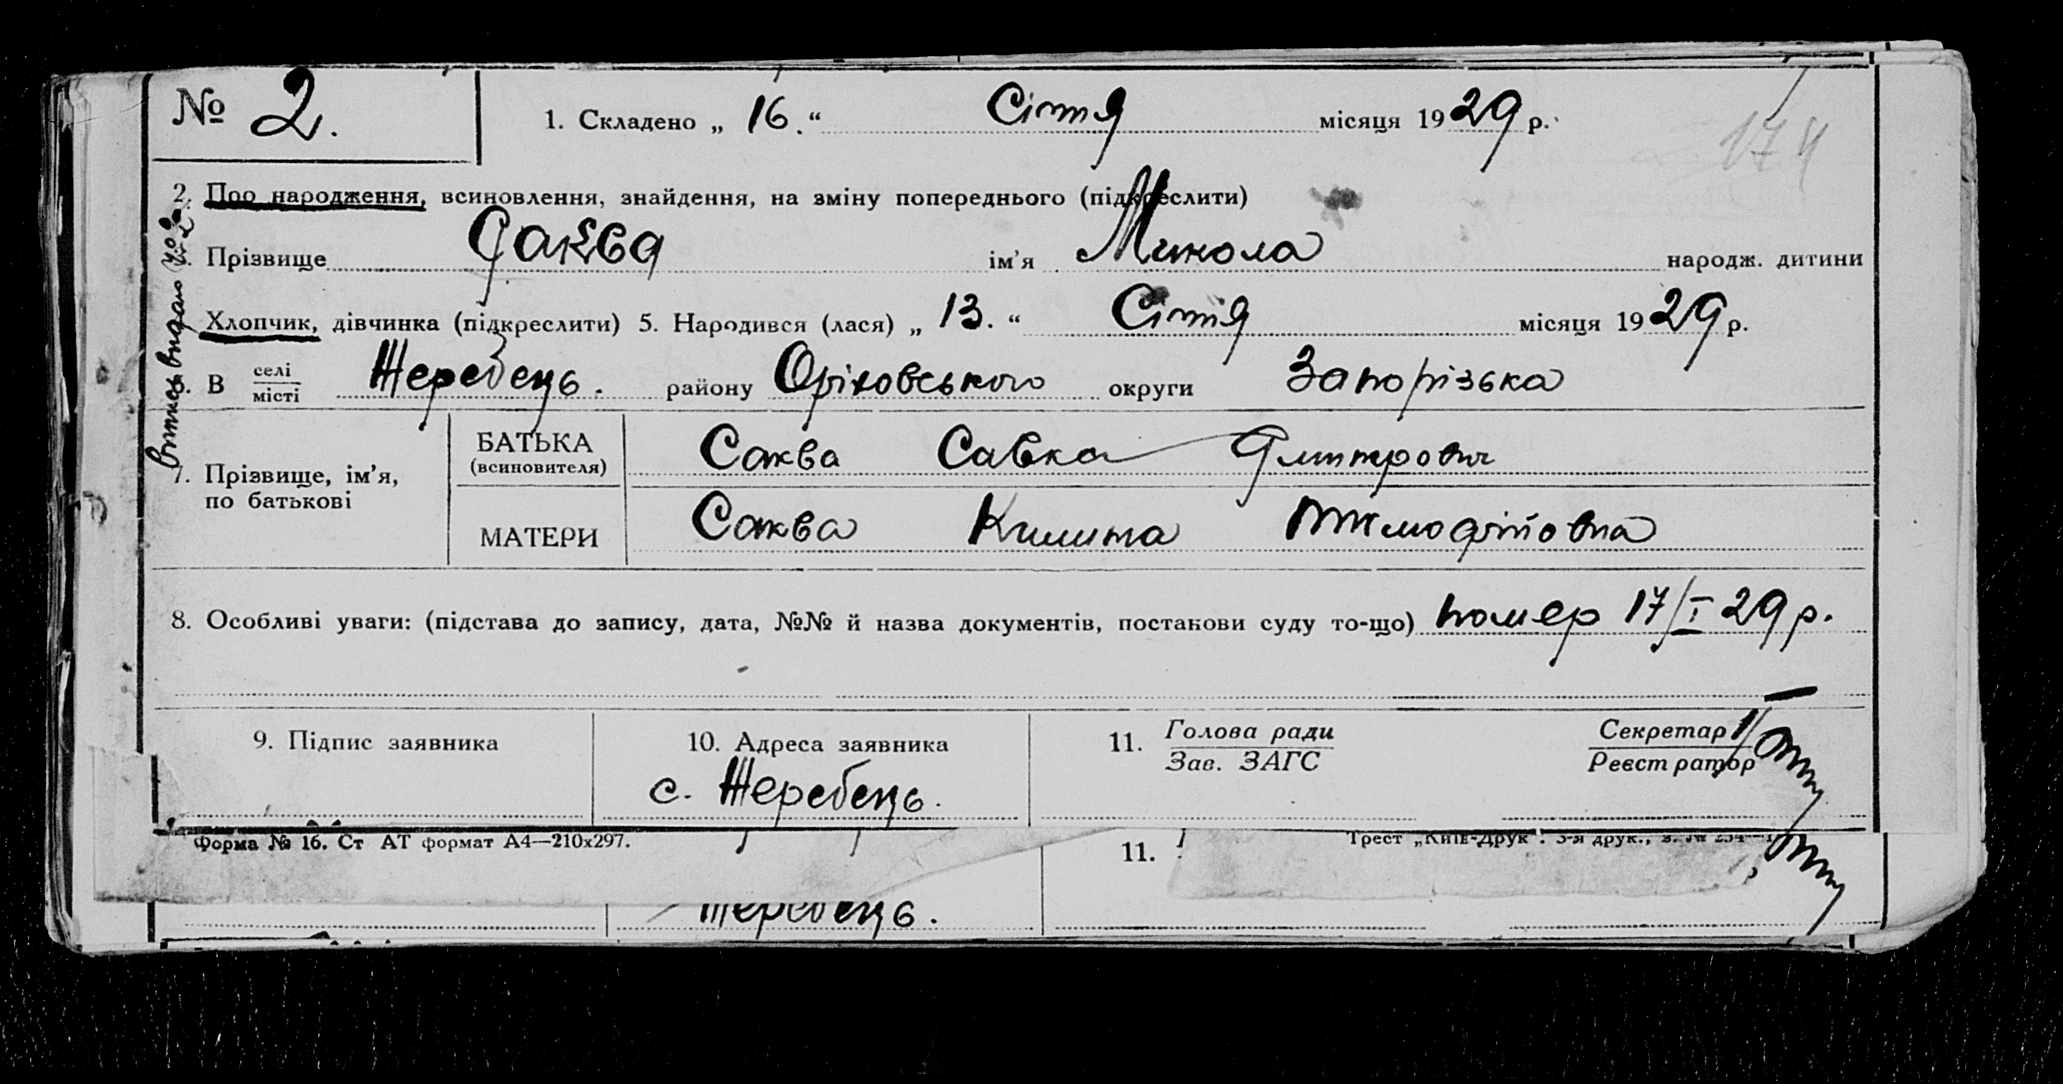 № 2. 1. Складено „ 16. “ Січня місяця 1929 р.
174
2. Про народження, всиновлення, знайдення, на зміну попереднього (підкреслити)
Прізвище Саква ім'я Микола народж. дитини
Хлопчик, дівчинка (підкреслити) 5. Народився (лася) „ 13. “ Січня місяця 1929 р.
В селі місті Жеребець. району Оріховського округи Запорізька
7. Прізвище, ім'я, по батькові
БАТЬКА (всиновителя) Саква Савка Дмитрович
МАТЕРИ Саква Килина Тимофіївна
8. Особливі уваги: (підстава до запису, дата, №№ й назва документів, постанови суду то-що) помер 17/I 29 р.
9. Підпис заявника
10. Адреса заявника
с. Жеребець.
11. Голова ради
Зав. ЗАГС
Секретар
Реєстратор
Форма № 16. Ст АТ формат А4—210х297.
11.
Трест „Київ-Друк". 3-я друк., з. №
Жеребець.